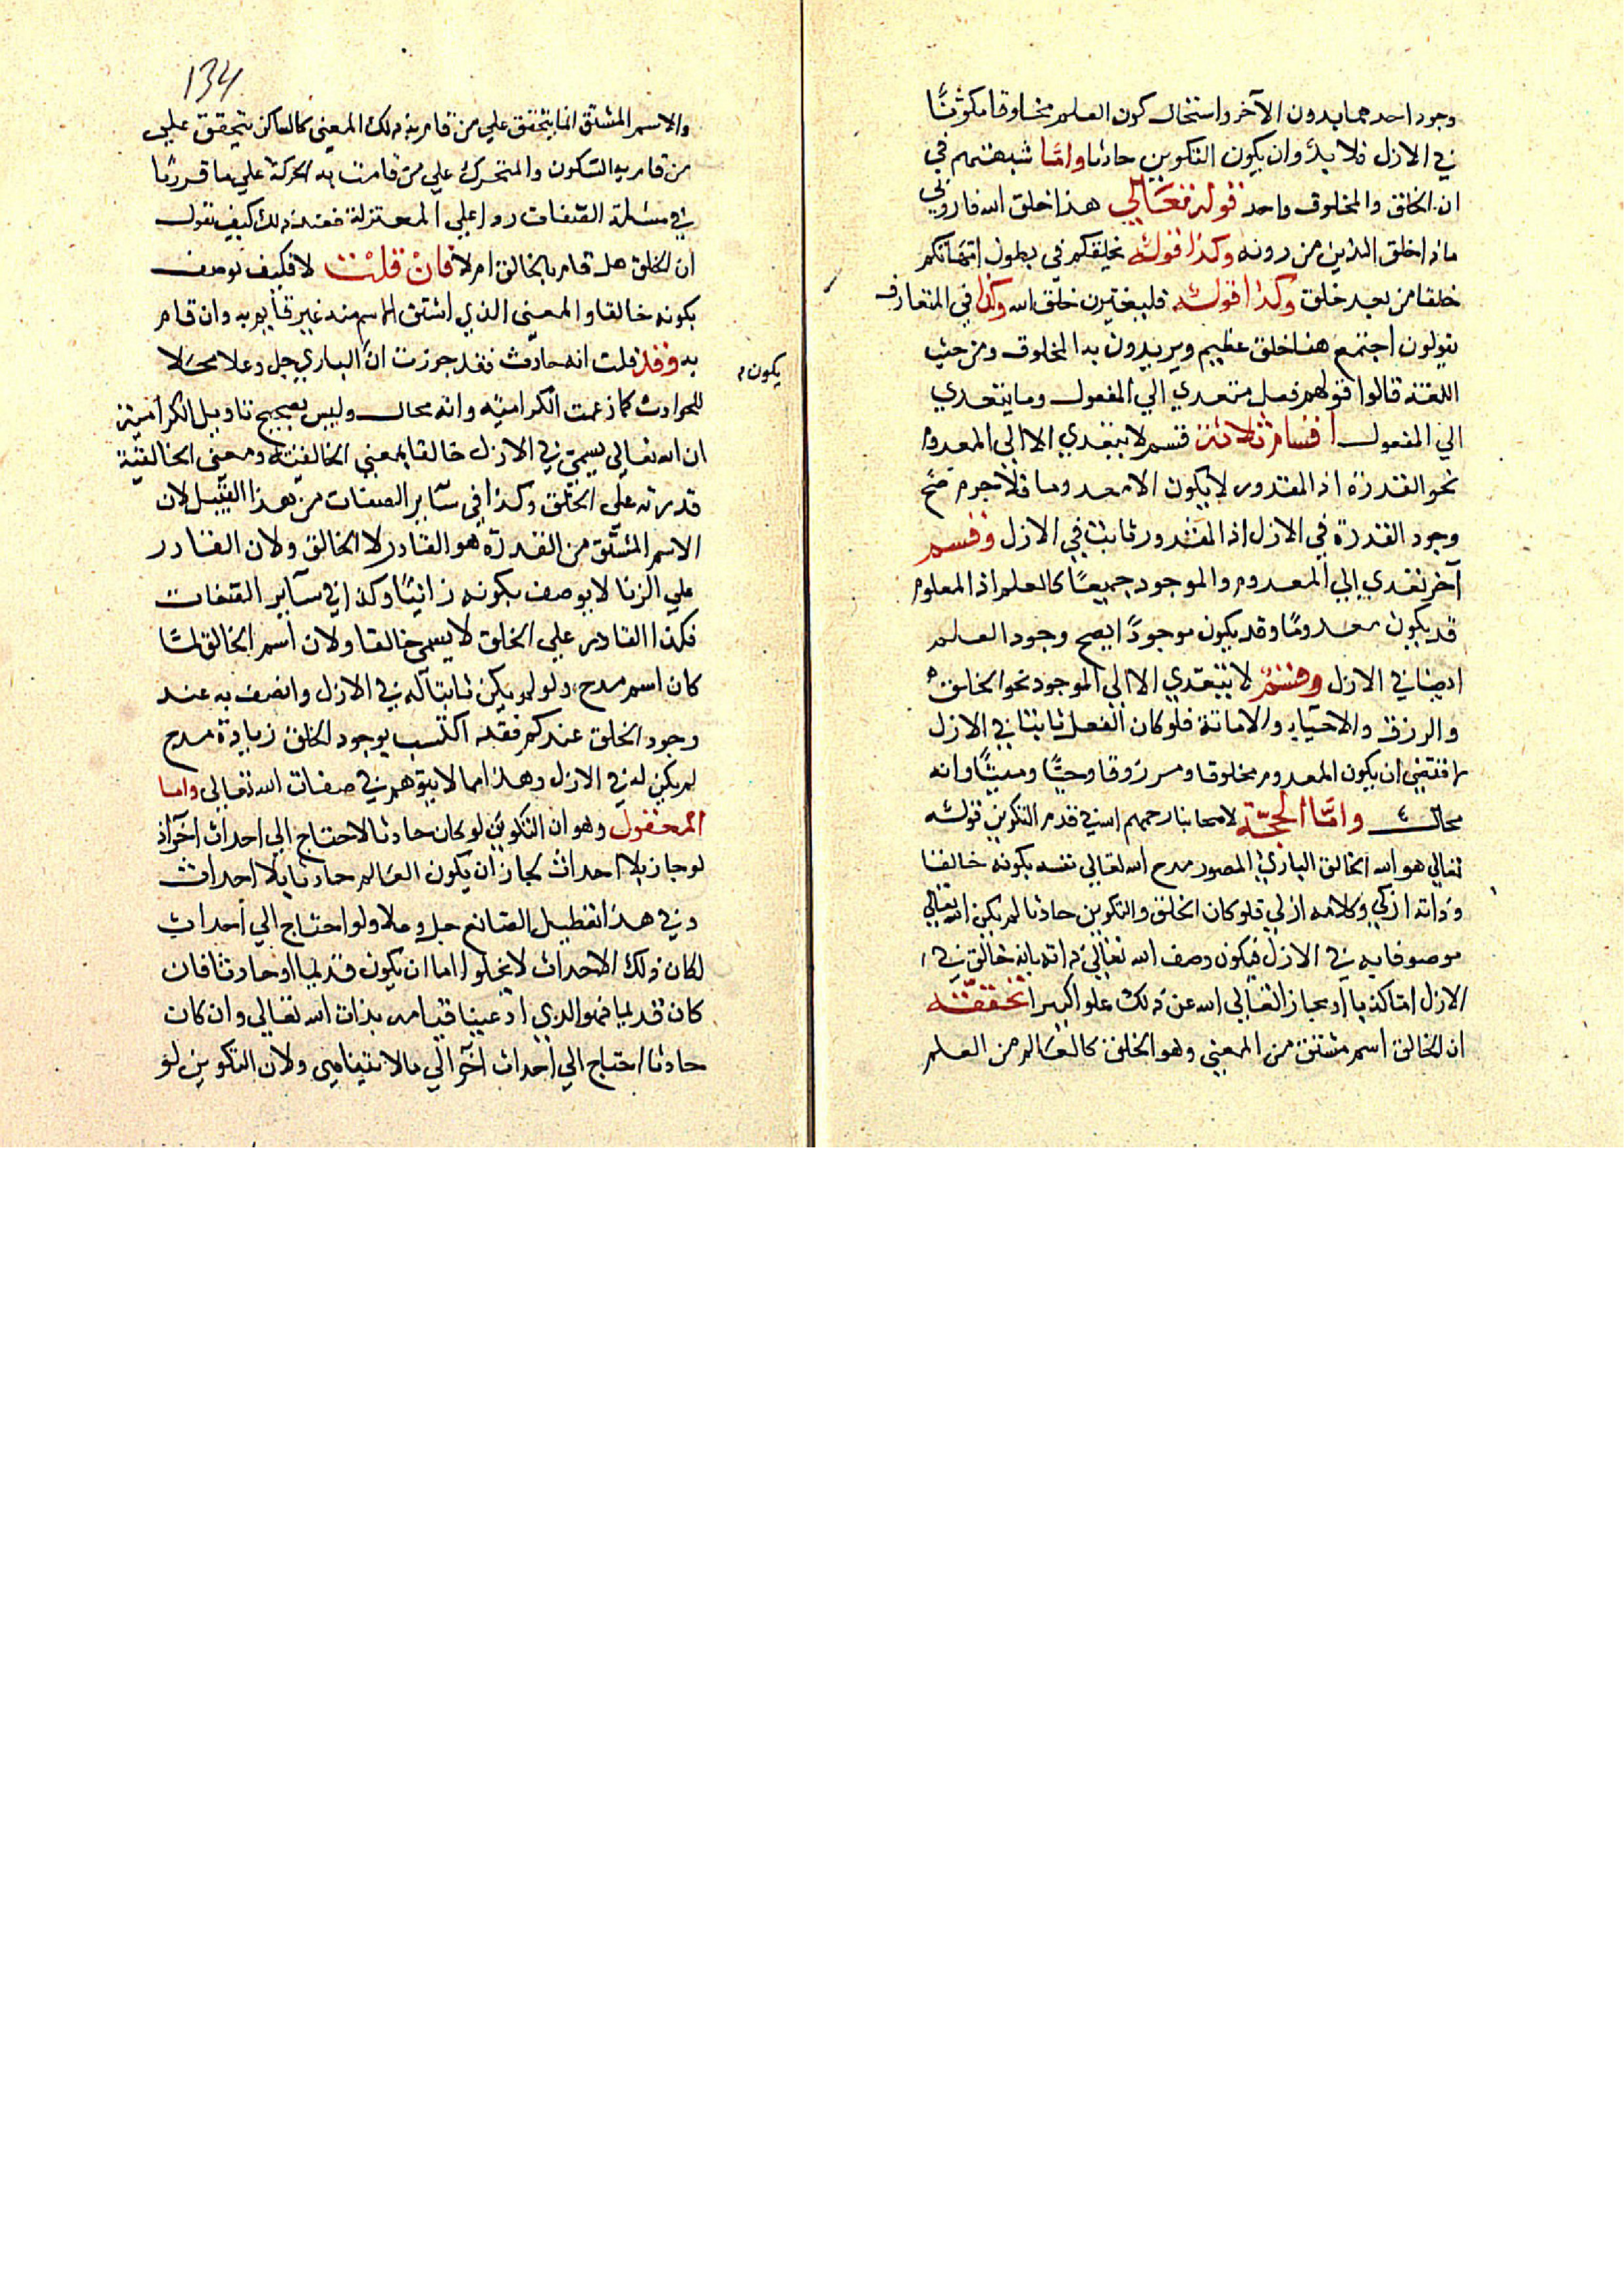 وجود احدهما بدون الآخر واستحال كون العالم مخلوقا مكونًا
في الازل فلا بدّ وان يكون التكوين حادثا وامّا شبهتهم في
ان الخلق والمخلوق واحد قوله تعالي هذا خلق الله فاروني
ماذا خلق الذين من دونه وكذا قوله يخلقكم في بطون امّهاتكم
خلقا من بعد خلق وكذا قوله فليغيّرن خلق الله وكذا في المتعارف
يقولون اجتمع هنا خلق عظيم ويريدون به المخلوق ومن حيث
اللغة قالوا قولهم فعل متعدي الي المفعول وما يتعدي
الي المفعول اقسام ثلاثة قسم لا يتعدي الا الي المعدوم
نحو القدرة اذ المقدور لا يكون الا معدوما فلا جرم صحّ
وجود القدرة في الازل اذ المقدور ثابت في الازل وقسم
آخر تعدي الي المعدوم والموجود جميعًا كالعلم اذ المعلوم
قد يكون معدومًا وقد يكون موجودًا يصح وجود العلم
ايضا في الازل وقسم لا يتعدي الا الي الموجود نحو الخلق
والرزق والاحيآء والاماتة فلو كان الفعل ثابتا في الازل
لاقتضي ان يكون المعدوم مخلوقا ومرزوقا وحيًّا وميتًا وانه
محال وامّا الحجّة لاصحابنا رحمهم الله في قدم التكوين قوله
تعالي هو الله الخالق الباري المصور مدح الله تعالي نفسه بكونه خالقا
وذاته ازلي وكلامه ازلي فلو كان الخلق والتكوين حادثا لم يكن الله تعالي
موصوفا به في الازل فيكون وصف الله تعالي ذاته بانه خالق في
الازل امّا كذبا او مجازا تعالي الله عن ذلك علوا كبيرا تحققّه
ان الخالق اسم مشتق من المعني وهو الخلق كالعالم من العلم
134
والاسم المشتق انما يتحقق علي من قام به ذلك المعني كالساكن يتحقق علي
من قام به السكون والمتحرك علي من قامت به الحركة علي ما قررنا
في مسئلة الصفات ردا علي المعتزلة فعند ذلك كيف تقول
ان الخلق هل قام بالخالق ام لا فان قلت لا فكيف يوصف
بكونه خالقا والمعني الذي اشتق الاسم منه غير قآيم به وان قام
به وقد قلت انه حادث فقد جوزت انّ الباري جل وعلا محلا
يكون
للحوادث كما زعمت الكراميّه وانه محال وليس بصحيح تاويل الكراميّة
ان الله تعالي يسمّي في الازل خالقا بمعني الخالقيّة ومعني الخالقيّة
قدرته علي الخلق وكذا في سآير الصفات من هذا القبيل لان
الاسم المشتق من القدرة هو القادر لا الخالق ولان القادر
علي الزنا لا يوصف بكونه زانيًا وكذا في سآير الصفات
فكذا القادر علي الخلق لا يسمي خالقا ولان اسم الخالق لمّا
كان اسم مدح ولو لم يكن ثابتا له في الازل واتصف به عند
وجود الخلق عندكم فقد اكتسب بوجود الخلق زيادة مدح
لم يكن له في الازل وهذا مما لا يتوهم في صفات الله تعالي واما
المعقول وهو ان التكوين لو كان حادثا لاحتاج الي احداث اخر اذ
لو جاز بلا احداث لجاز ان يكون العالم حادثا بلا احداث
وفي هذا تعطيل الصانع جل وعلا ولو احتاج الي احداث
لكان ذلك الاحداث لا يخلوا اما ان يكون قديما او حادثا فان
كان قديما فهو الذي ادعينا قيامه بذات الله تعالي وان كان
حادثا احتاج الي احداث آخر الي ما لا يتناهي ولان التكوين لو